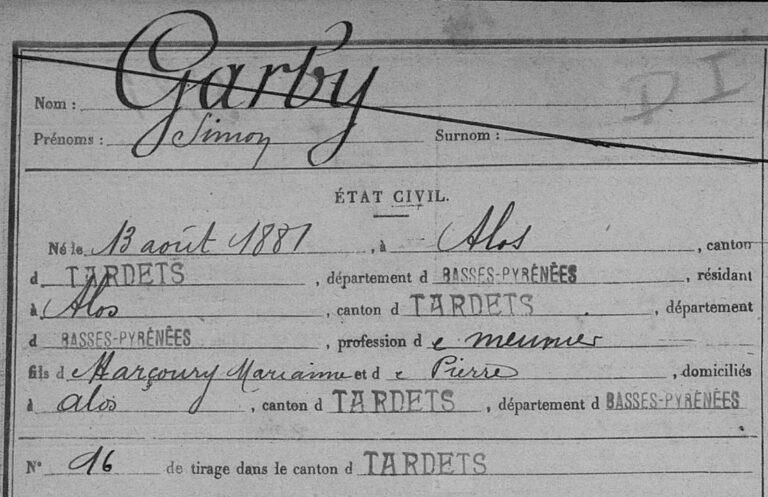 DI
Nom : Garby
Prénoms : Simon Surnom :
ÉTAT CIVIL.
Né le 13 août 1881, à Alos, canton
d TARDETS, département d BASSES-PYRÉNÉES, résidant
à Alos, canton d TARDETS, département
d BASSES-PYRÉNÉES, profession d e meunier
fils d Harçoury Marianne et d e Pierre, domiciliés
à alos, canton d TARDETS, département d BASSES-PYRÉNÉES
N° 16 de tirage dans le canton d TARDETS